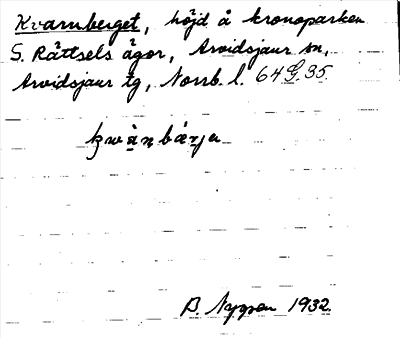 Kvarnberget, höjd å kronoparken
S. Rättsels ägor, Arvidsjaur sn,
Arvidsjaur tg, Norrb. l. 64 G. 35.
B. Nygren 1932.